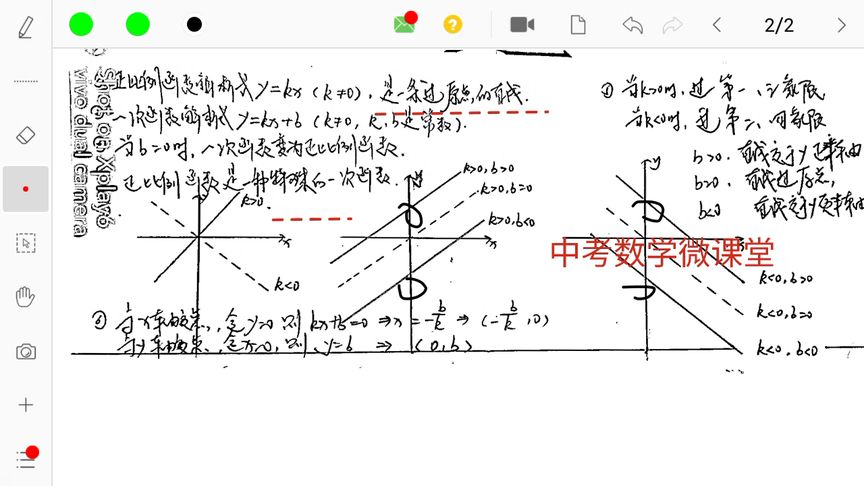 2/2
正比例函数解析式 y=kx (k≠0), 是一条过原点的直线.
一次函数解析式 y=kx+b (k≠0, k,b是常数).
当b=0时, 一次函数变为正比例函数.
正比例函数是一种特殊的一次函数.
① 当k>0时, 过第一、三象限
当k<0时, 过第二、四象限
b>0. 直线交于y正半轴
b=0. 直线过原点,
b<0 直线交于y负半轴
k>0.
k<0
y
x
k>0,b>0
k>0,b=0
k>0,b<0
y
x
y
k<0,b>0
k<0,b=0
k<0,b<0
中考数学微课堂
② 与x轴的交点, 令y=0 则 kx+b=0 ⇒ x=-b/k ⇒ (-b/k,0)
与y轴的交点, 令x=0, 则 y=b ⇒ (0,b)
Shot on Xplay6
vivo dual camera